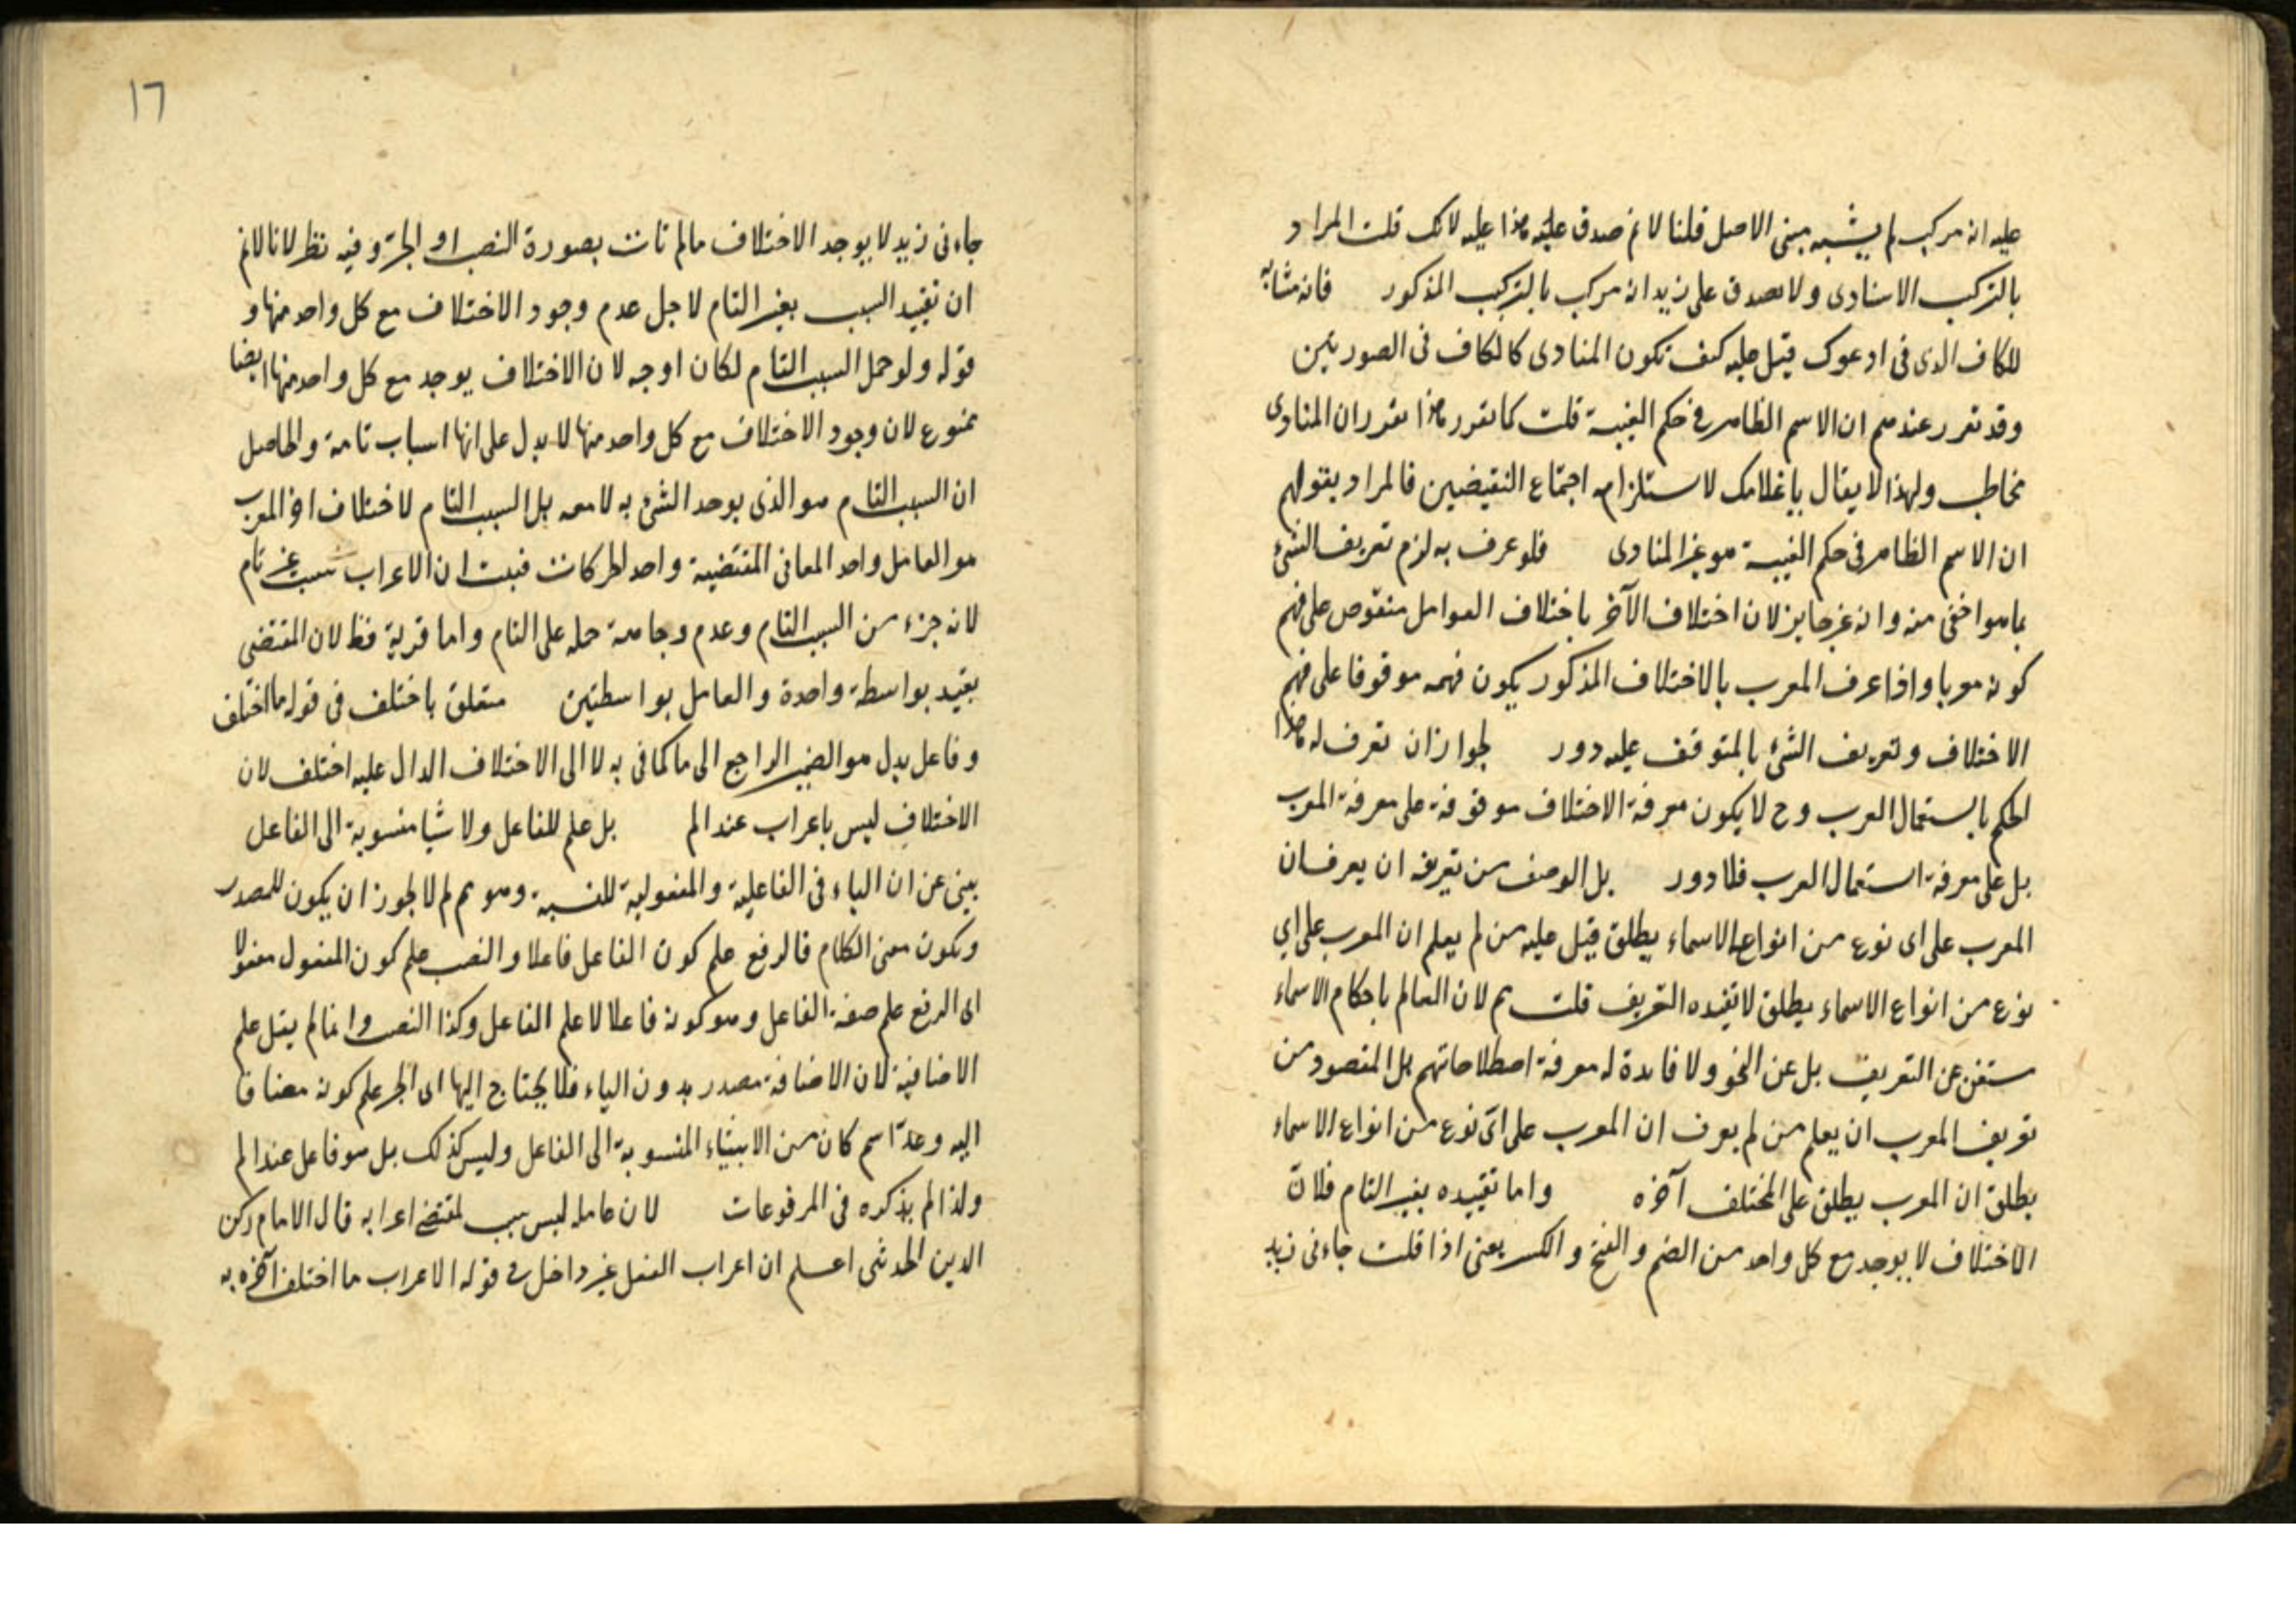 عليه انه مركب لم يشبه مبنى الاصل قلنا لا نم صدق عليه هذا عليه لانك قلت المراد
بالتركيب الاسنادى ولا يصدق على زيد انه مركب بالتركيب المذكور فانه مشابه
للكاف الذى فى ادعوك قيل عليه كيف تكون المنادى كالكاف فى الصورتين
وقد تقرر عندهم ان الاسم الظاهر فى حكم الغيبة قلت كما تقرر هذا تقرر ان المنادى
مخاطب ولهذا لا يقال يا غلامك لاستلزامه اجتماع النقيضين فالمراد بقولهم
ان الاسم الظاهر فى حكم الغيبة هو غير المنادى فلو عرف به لزم تعريف الشئ
بما هو اخفى منه وانه غير جايز لان اختلاف الآخر باختلاف العوامل منقوص على فهم
كونه معربا واذا عرف المعرب بالاختلاف المذكور يكون فهمه موقوفا على فهم
الاختلاف وتعريف الشئ بالمتوقف عليه دور لجواز ان تعرف له هذا
الحكم باستعمال العرب وح لا يكون معرفة الاختلاف موقوفة على معرفة المعرب
بل على معرفة استعمال العرب فلا دور بل الوصف من تعريفه ان يعرف ان
المعرب على اى نوع من انواع الاسماء يطلق قيل عليه من لم يعلم ان المعرب على اي
نوع من انواع الاسماء يطلق لا تفيده التعريف قلت مم لان العالم باحكام الاسماء
ستغن عن التعريف بل عن النحو ولا فايدة له معرفة اصطلاحاتهم بل المقصود من
تعريف المعرب ان يعلم من لم يعرف ان المعرب على اى نوع من انواع الاسماء
يطلق ان المعرب يطلق على المختلف آخره واما تقييده بغير التام فلانّ
الاختلاف لا يوجد مع كل واحد من الضم والفتح والكسر يعنى اذا قلت جاءنى زيد
١٦
جاءنى زيد لا يوجد الاختلاف ما لم تات بصورة النصب او الجر وفيه نظر لانا لا نم
ان تقييد السبب بغير التام لاجل عدم وجود الاختلاف مع كل واحد منها و
قوله ولو حمل السبب التام لكان اوجه لان الاختلاف يوجد مع كل واحد منها ايضا
ممنوع لان وجود الاختلاف مع كل واحد منها لا يدل على انها اسباب تامة والحاصل
ان السبب التام هو الذى يوجد الشئ به لا معه بل السبب التام لاختلاف اخر المعرب
هو العامل واحد المعانى المقتضية واحد الحركات فثبت ان الاعراب سبب غير تام
لانه جزء من السبب التام وعدم وجاهة حمله على التام واما قربه فظ لان المقتضى
بقيد بواسطة واحدة والعامل بواسطتين متعلق باختلف فى قوله ما اختلف
وفاعل يدل هو الضمير الراجع الى ما كما فى به لا الى الاختلاف الدال عليه اختلف لان
الاختلاف ليس باعراب عند المص بل علم للفاعل ولا شيا منسوبة الى الفاعل
يبنى عن ان الياء فى الفاعلية والمفعولية للنسبة وهو مم لم لا يجوز ان يكون للمصدر
ويكون معنى الكلام فالرفع علم كون الفاعل فاعلا والنصب علم كون المفعول مفعولا
اى الرفع علم صفة الفاعل وهو كونه فاعلا لا علم الفاعل وكذا النصب وانما لم يقل علم
الاضافية لان الاضافة مصدر بدون الياء فلا يحتاج اليها اى الجر علم كونه مضافا
اليه وعدّ اسم كان من الاشياء المنسوبة الى الفاعل وليس كذلك بل هو فاعل عند المص
ولذا لم يذكره فى المرفوعات لان عامله ليس بسبب لمقتضى اعرابه قال الامام ركن
الدين الحديثى اعلم ان اعراب الفعل غير داخل فى قوله الاعراب ما اختلف آخره به